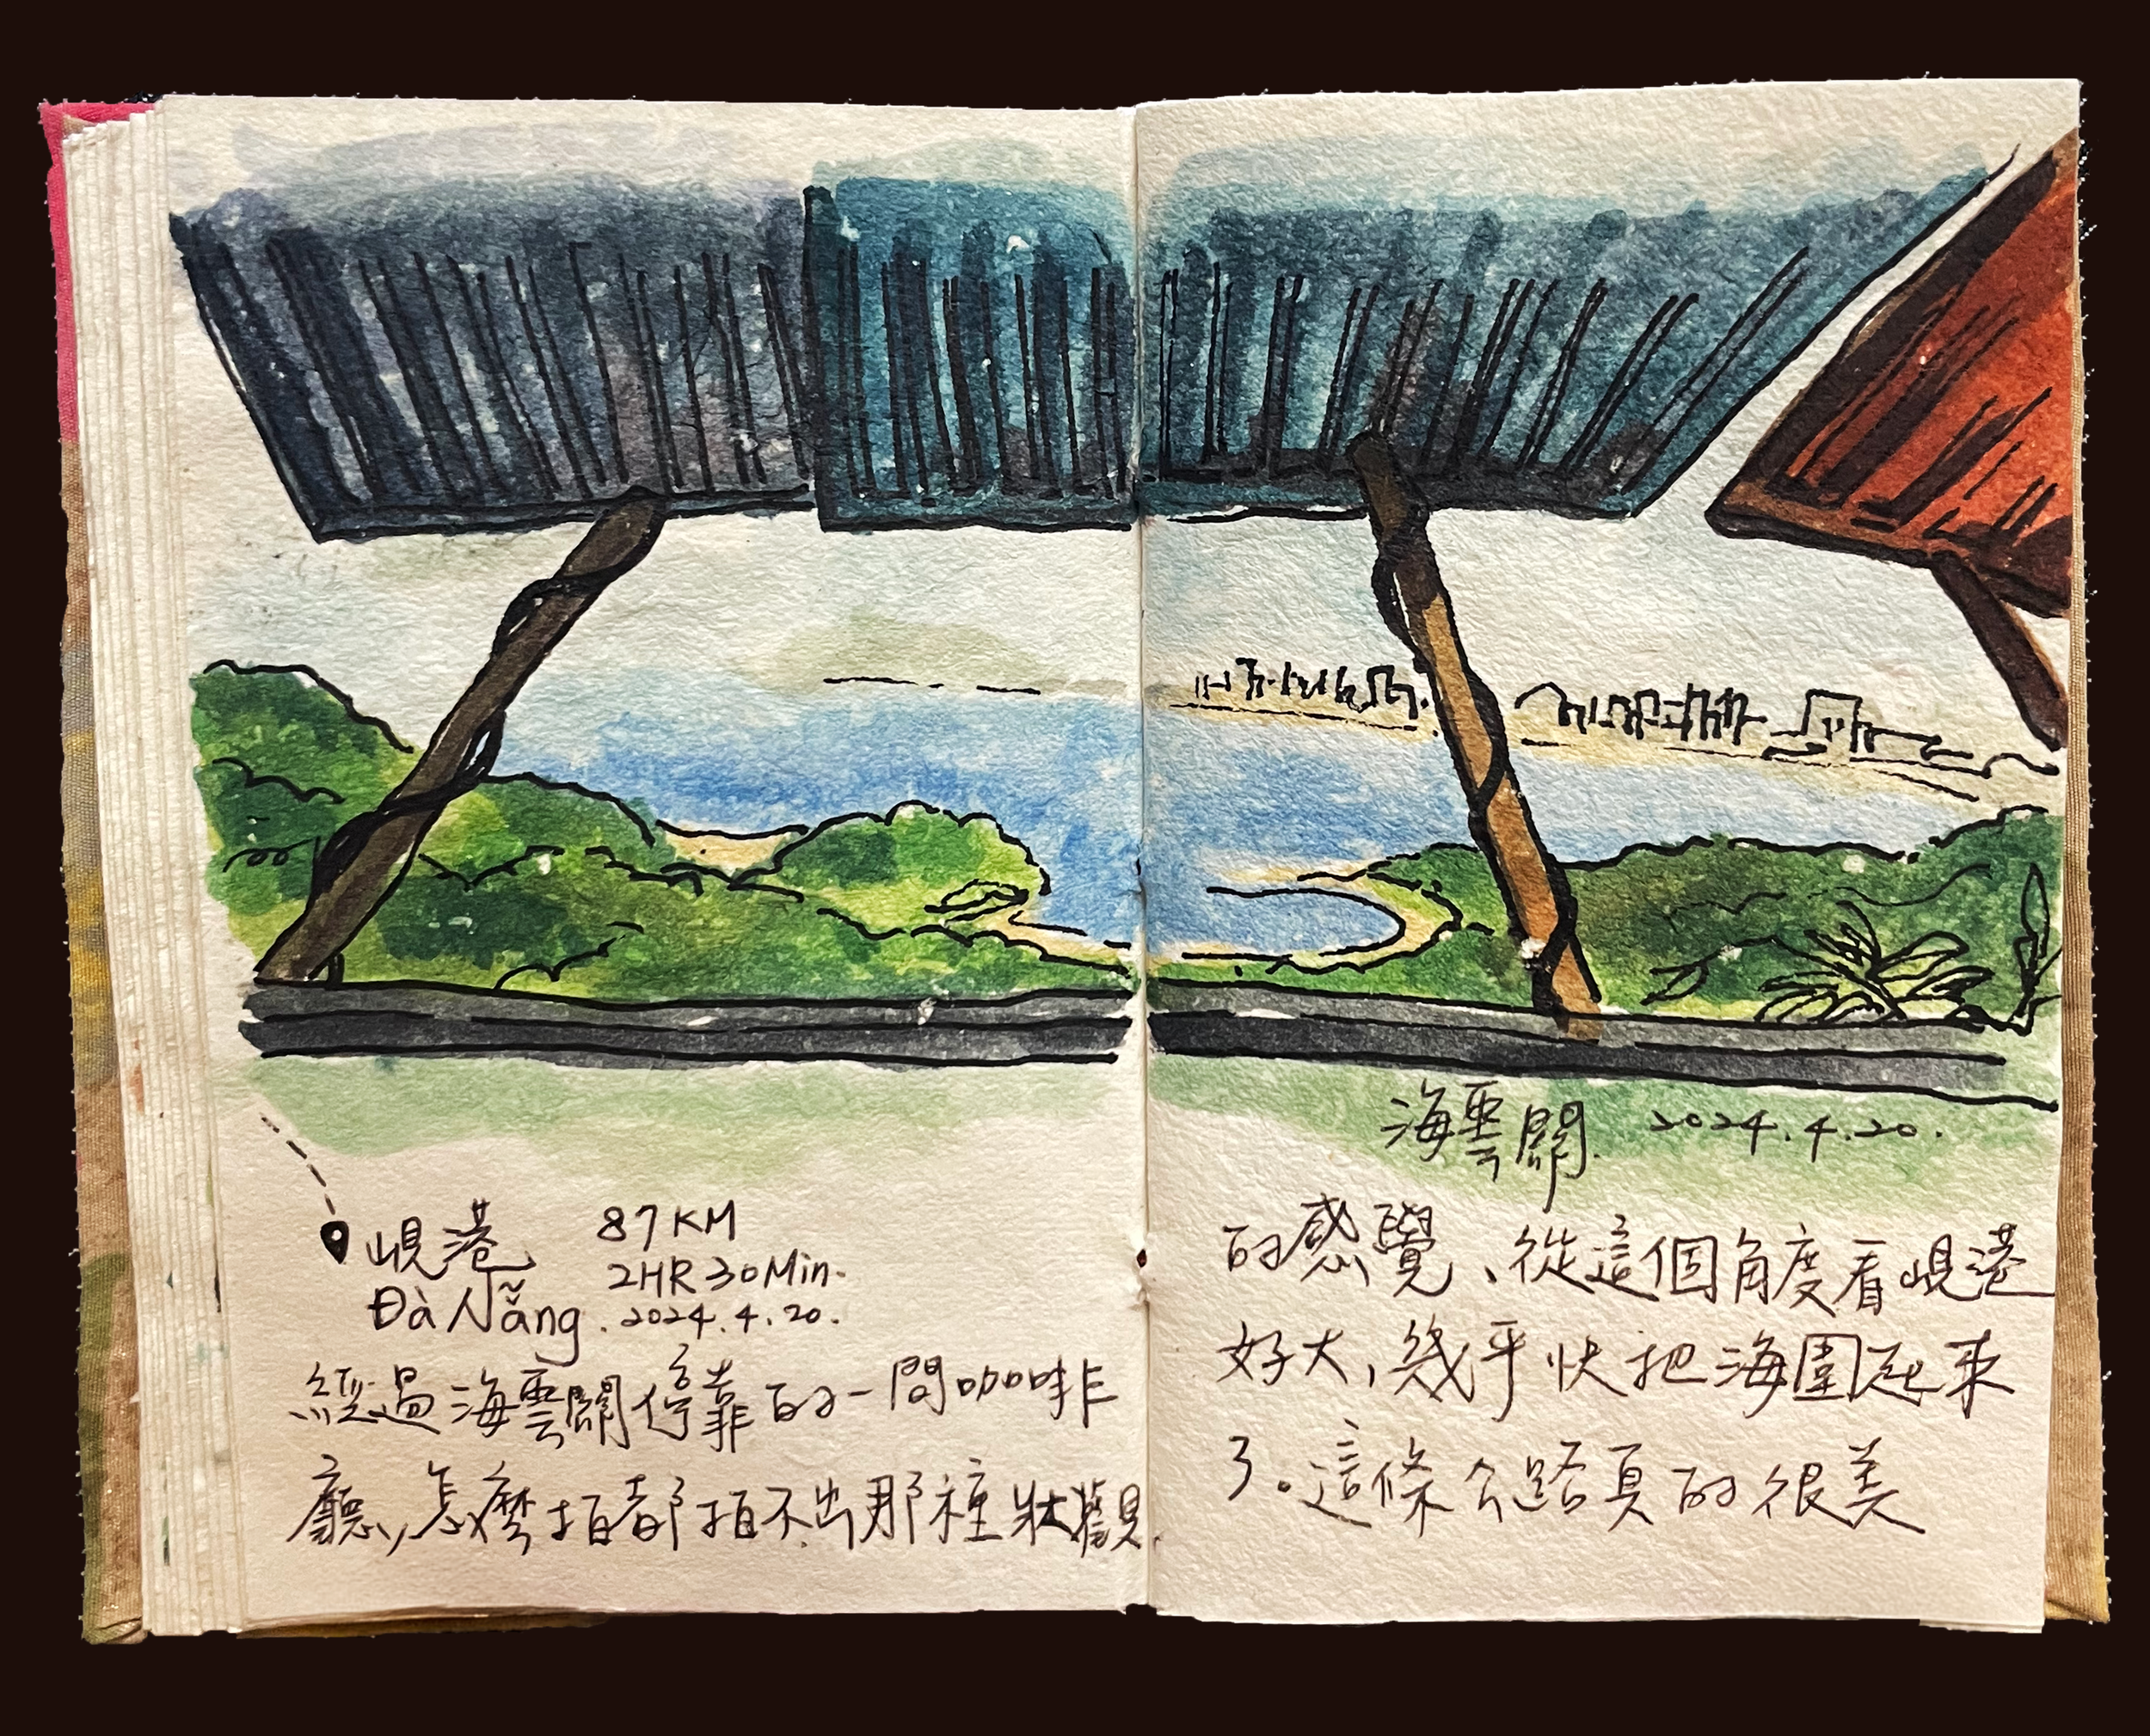 海雲關 2024.4.20.
峴港 87KM
2HR 30Min.
Đà Nẵng. 2024.4.20.
經過海雲關停靠的一間咖啡
廳,怎麼拍都拍不出那種壯觀
的感覺、從這個角度看峴港
好大,幾乎快把海圍起來
了。這條公路真的很美